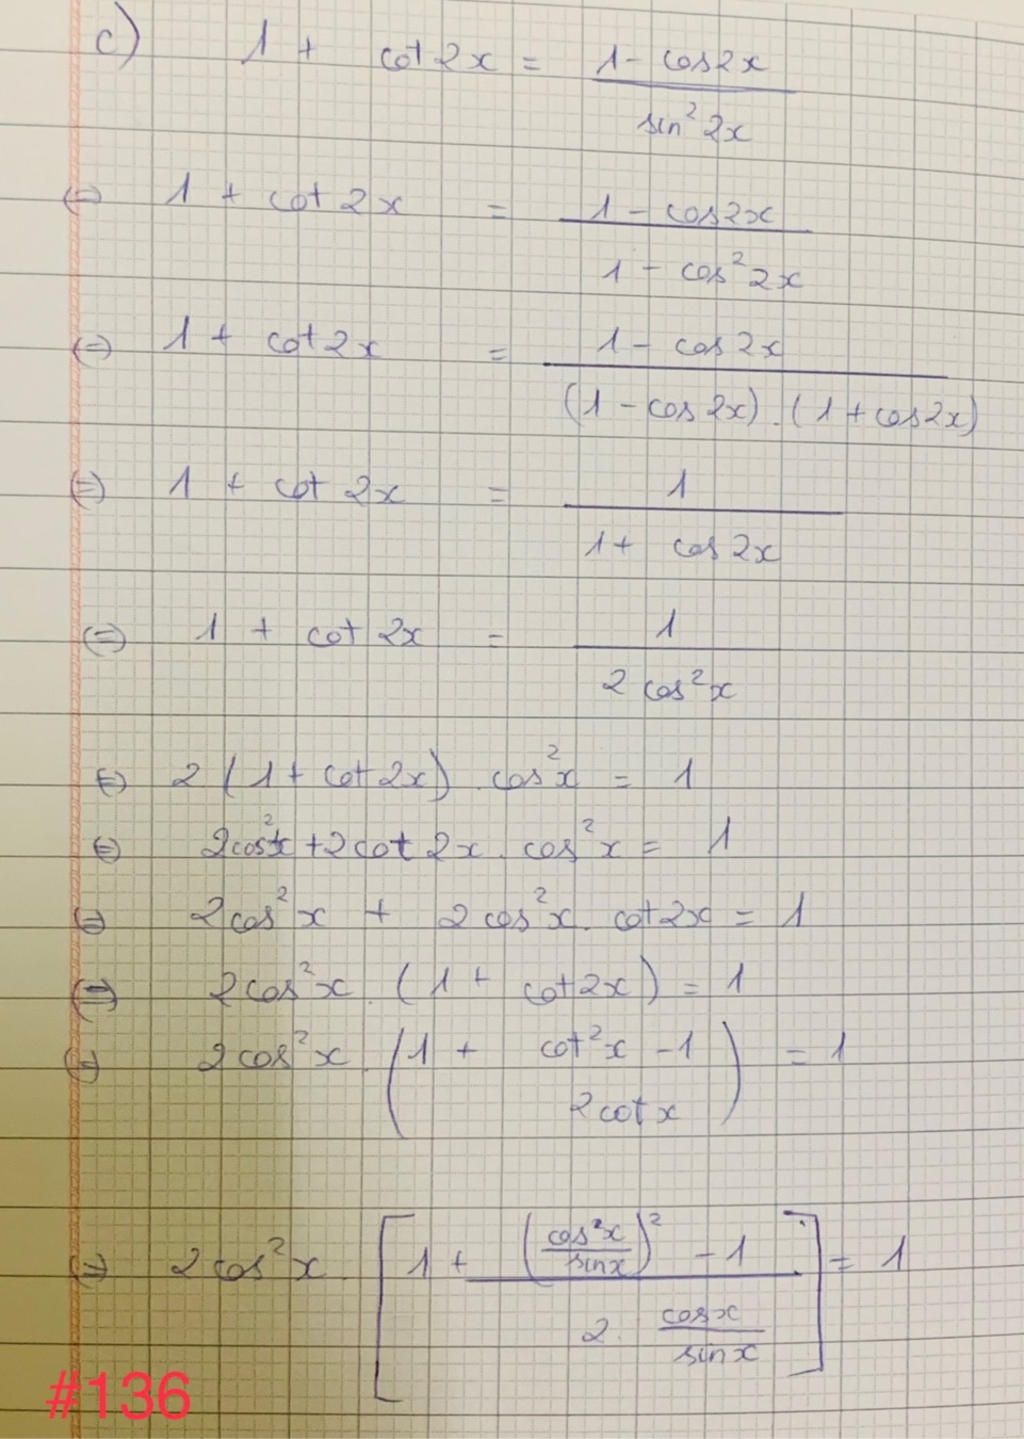 c) 1 + cot 2x = \frac{1 - cos2x}{sin² 2x}
(=) 1 + cot 2x = \frac{1 - cos2x}{1 - cos² 2x}
(=) 1 + cot 2x = \frac{1 - cos 2x}{(1 - cos 2x) . (1 + cos2x)}
(=) 1 + cot 2x = \frac{1}{1 + cos 2x}
(=) 1 + cot 2x = \frac{1}{2 cos²x}
(=) 2 (1 + cot 2x) . cos²x = 1
(=) 2cos²x + 2cot 2x . cos²x = 1
(=) 2cos²x + 2cos²x . cot 2x = 1
(=) 2cos²x . (1 + cot2x) = 1
(=) 2cos²x . (1 + cot²x - 1 2cotx) = 1
(=) 2cos²x . [1 + \frac{(\frac{cos²x}{sinx})² - 1}{2 . \frac{cosx}{sinx}}] = 1
#136